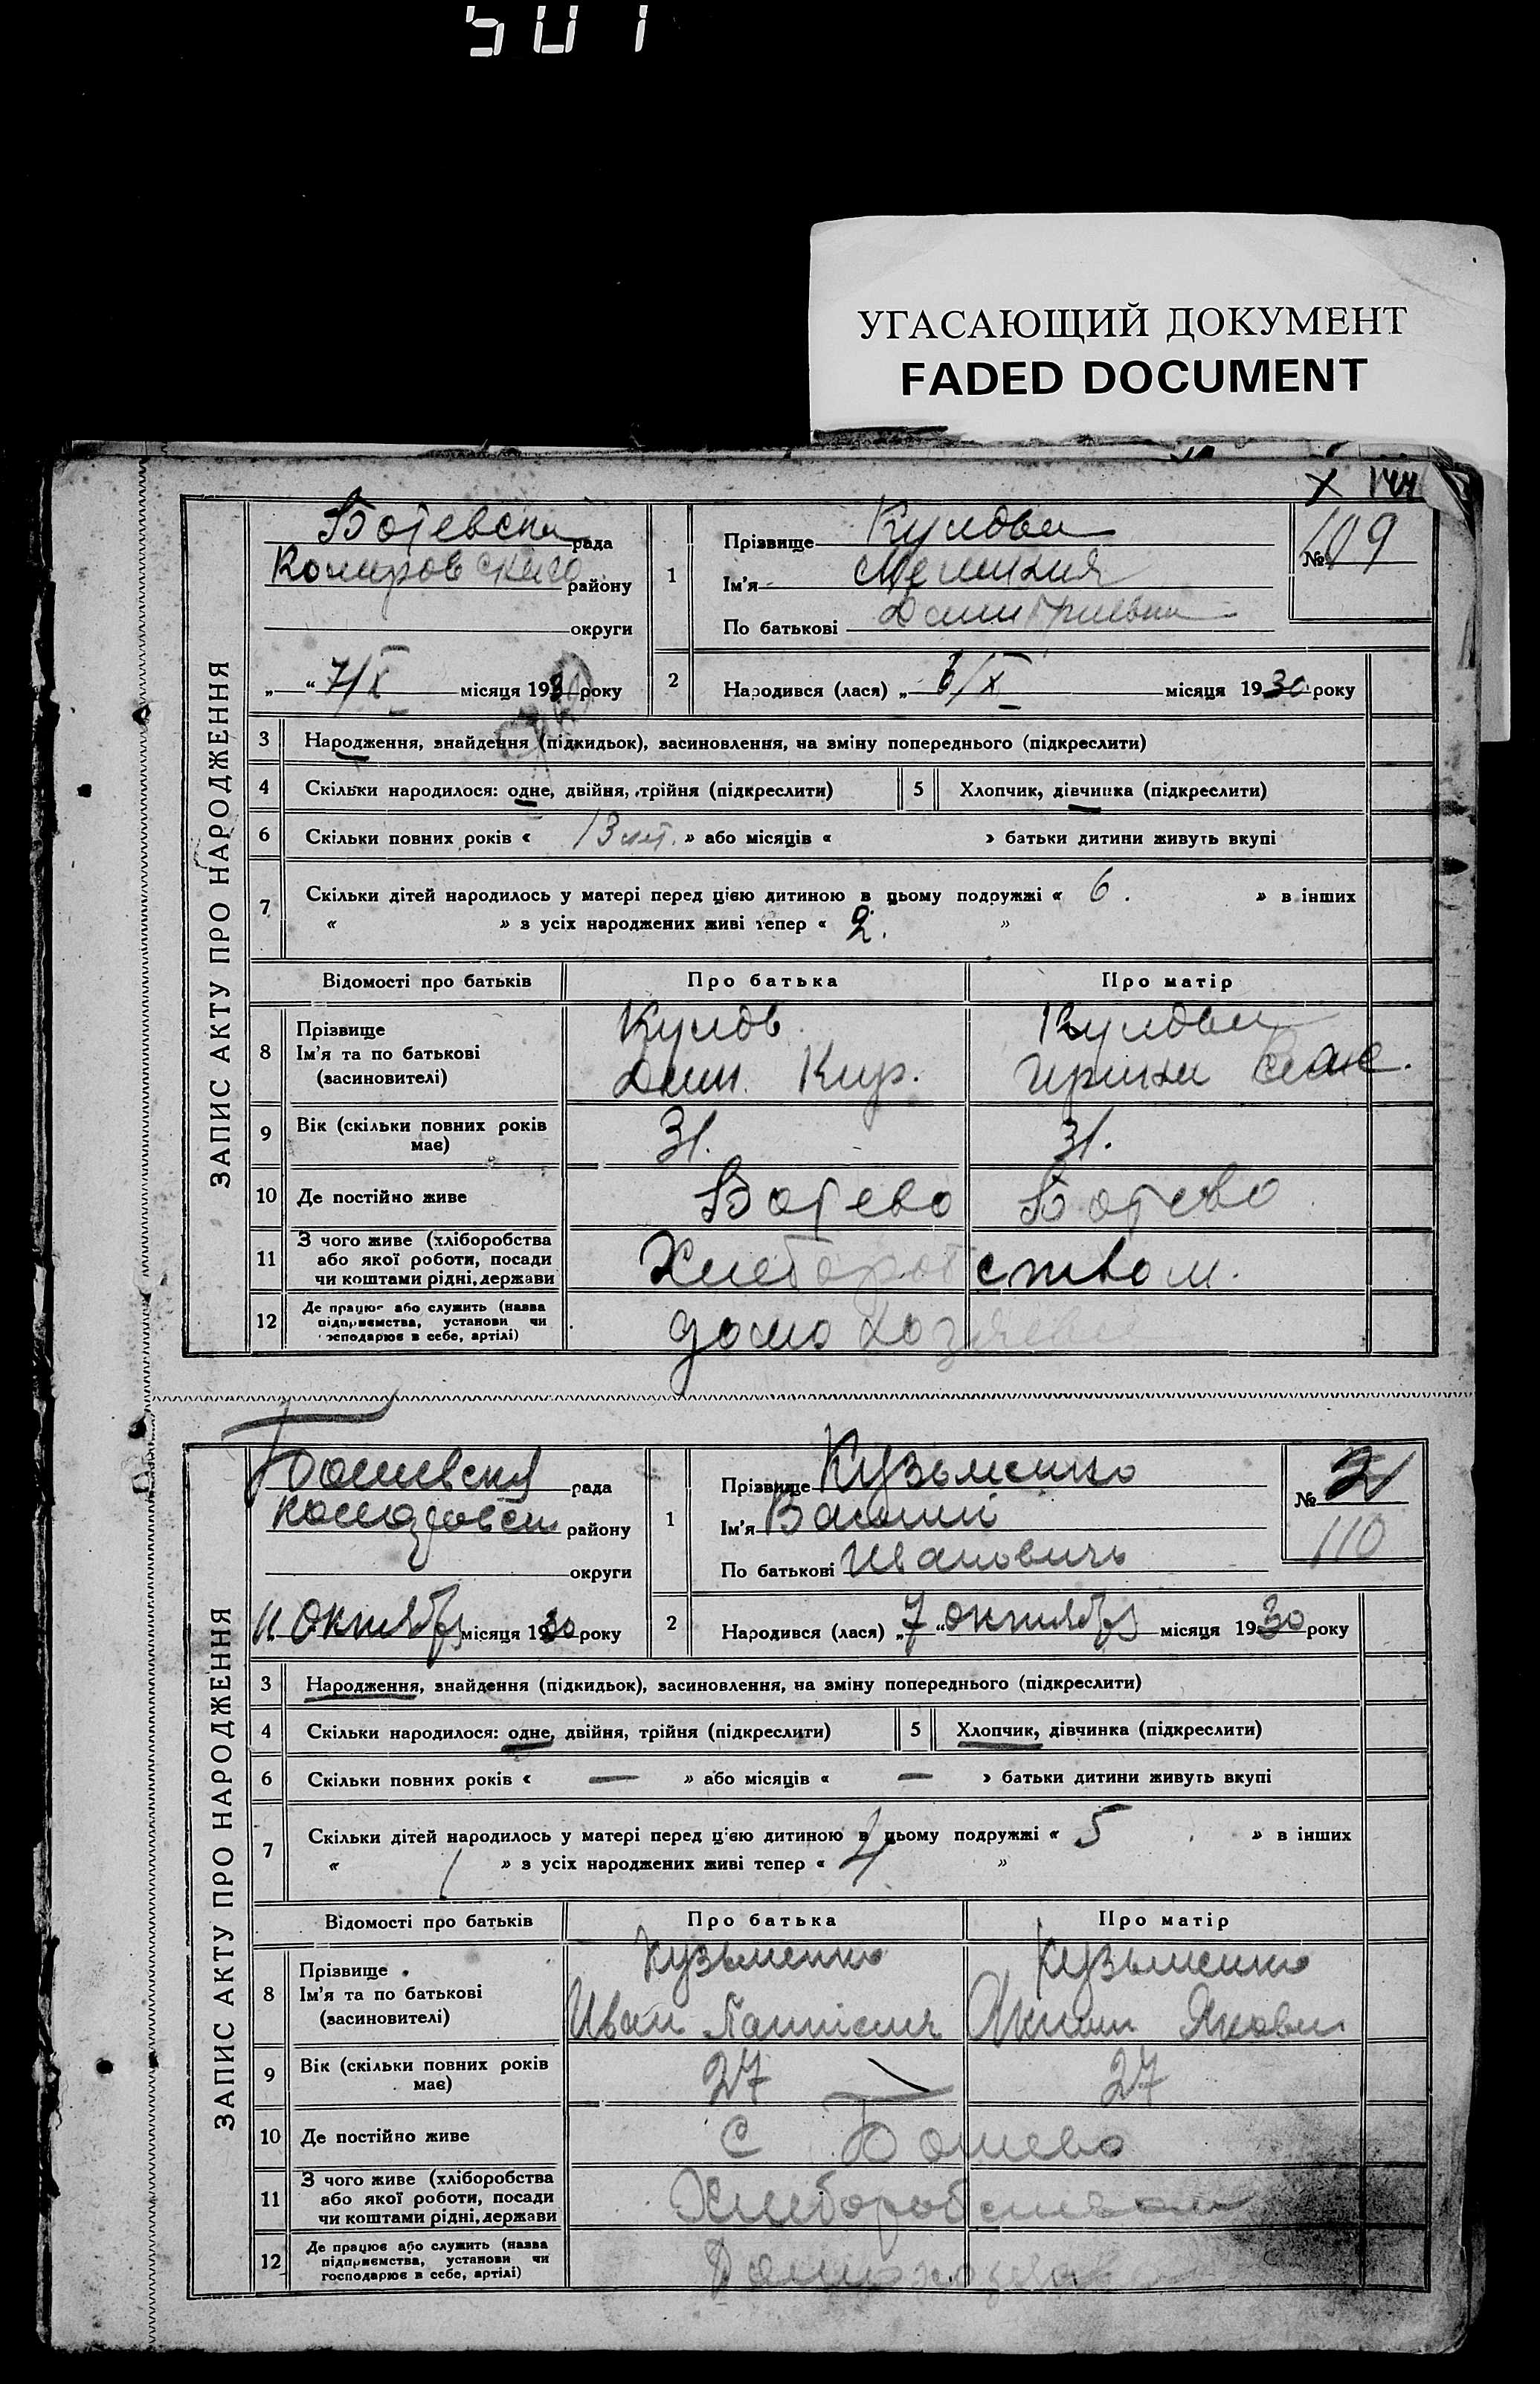 501
УГАСАЮЩИЙ ДОКУМЕНТ
FADED DOCUMENT
X 144
ЗАПИС АКТУ ПРО НАРОДЖЕННЯ
Ботевска рада
района
району
округи
„ “ 7/X місяця 1930 року
1
Прізвище
Ім'я
По батькові Дмитриевна
№ 109
2
Народився (лася) „ 6/X місяця 1930 року
3 Народження, знайдення (підкидьок), засиновлення, на зміну попереднього (підкреслити)
4 Скільки народилося: одне, двійня, трійня (підкреслити) 5 Хлопчик, дівчинка (підкреслити)
6 Скільки повних років « 13 лет. » або місяців « » батьки дитини живуть вкупі
7 Скільки дітей народилось у матері перед цією дитиною в цьому подружжі « 6. » в інших
« » з усіх народжених живі тепер « 2. »
Відомості про батьків Про батька Про матір
8 Прізвище
Ім'я та по батькові
(засиновителі)
Дми. Кир.
9 Вік (скільки повних років має) 31. 31.
10 Де постійно живе Ботево Ботево
11 З чого живе (хліборобства або якої роботи, посади чи коштами рідні, держави Хлеборобством.
12 Де працює або служить (назва підприємства, установи чи господарює в себе, артілі)
ЗАПИС АКТУ ПРО НАРОДЖЕННЯ
Ботевская рада
району
округи
11 Октября місяця 1930 року
1
Прізвище Кузьменко
Ім'я Василий
По батькові Иванович
№ 21
110
2
Народився (лася) „ 7 “ октября місяця 1930 року
3 Народження, знайдення (підкидьок), засиновлення, на зміну попереднього (підкреслити)
4 Скільки народилося: одне, двійня, трійня (підкреслити) 5 Хлопчик, дівчинка (підкреслити)
6 Скільки повних років « — » або місяців « — » батьки дитини живуть вкупі
7 Скільки дітей народилось у матері перед цією дитиною в цьому подружжі « 5 » в інших
« 1 » з усіх народжених живі тепер « 4 »
Відомості про батьків Про батька Про матір
8 Прізвище Кузьменко Кузьменко
Ім'я та по батькові Иван
(засиновителі)
9 Вік (скільки повних років має) 27 27
10 Де постійно живе с Ботево
11 З чого живе (хліборобства або якої роботи, посади чи коштами рідні, держави Хлеборобством
12 Де працює або служить (назва підприємства, установи чи господарює в себе, артілі)